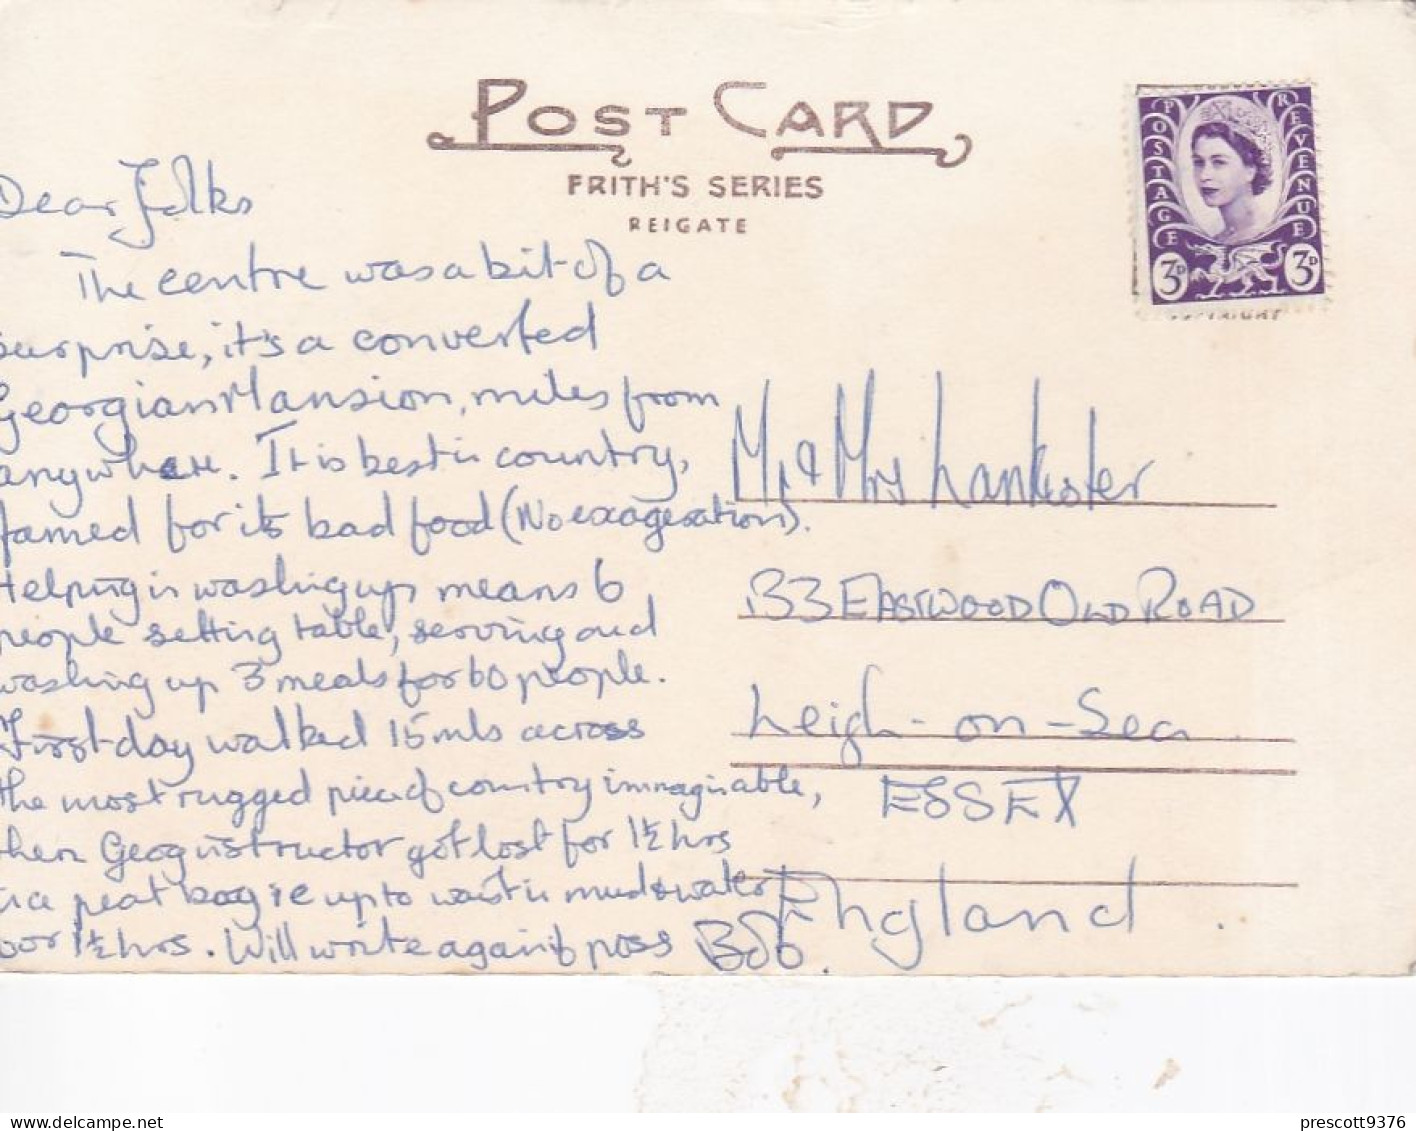 POST CARD
FRITH'S SERIES
REIGATE
POSTAGE REVENUE
3D 3D
Dear Folks
The centre was a bit of a
surprise, it's a converted
Georgian Mansion, miles from
anywhere. It is best in country,
famed for its bad food (No exagesation).
Helping in washing up means 6
people setting table, serving and
washing up 3 meals for 60 people.
First day walked 15 mls across
the most rugged piece of country immaginable,
then Geog instructor got lost for 1½ hrs
in a peat bog ie up to waist in mud & water
for 1½ hrs. Will write again if poss Bob.
Mr & Mrs Lankester
133 EASTWOOD OLD ROAD
Leigh-on-Sea
ESSEX
England.
prescott9376